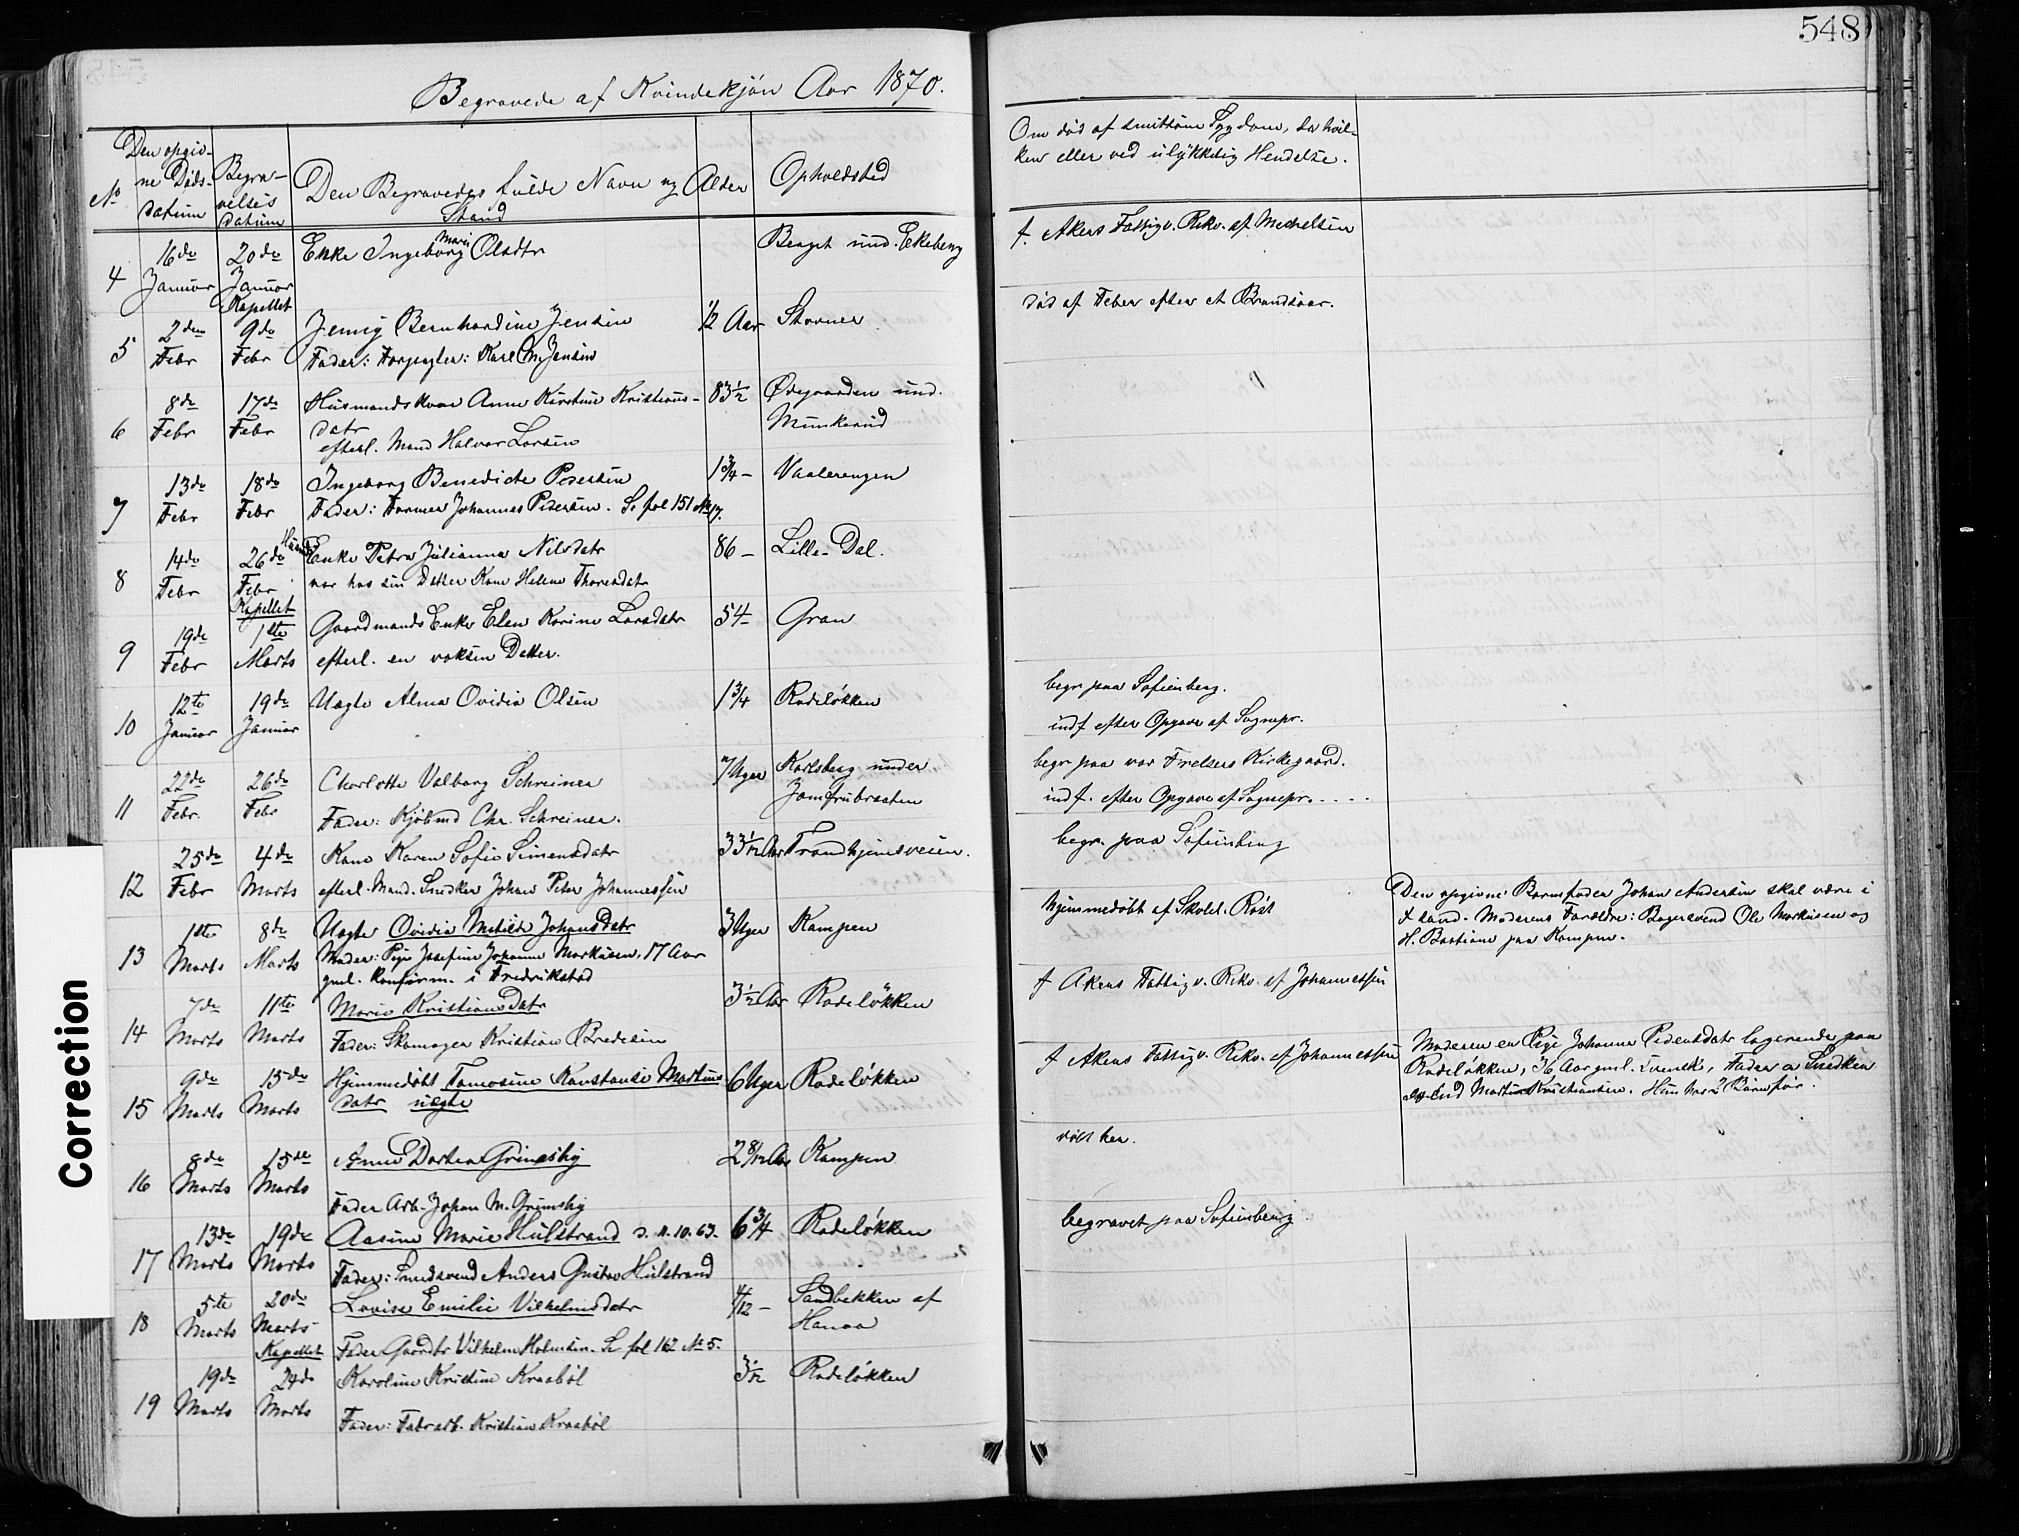 548
Begravede af Kvindekjön Aar 1870.
No
Den opgiv-
ne Döds-
datum
Begra-
velses
datum
Den Begravedes fulde Navn og
Stand
Alder
Opholdsted
Om död af smitsom Sygdom, da hvil-
ken eller ved ulykkelig Hendelse.
4
16de Januar
20de Januar Kapellet
Enke Ingeborg Marie Olsdtr
Berget und. Ekeberg
f. Akers Fattigv. Rekv. af Mechelsen
5
2den Febr
9de Febr
Jenny Bernhardine Jensen
Fader: Forpagter: Karl M. Jensen
1/2 Aar
Stovner
död af Feber efter et Brandsaar.
6
8de Febr
17de Febr
Husmandskone Anne Kirstine Kristians-
datr
efterl. Mand Halvor Larsen
83 1/2
Ödegaarden und.
Munkerud
7
13de Febr
18de Febr
Ingeborg Benedicte Petersen
Fader: Former Johannes Petersen. Se fol 151 No 17.
1 3/4 -
Vaalerengen
8
14de Febr
26de Febr Kapellet
Enke Petra Julianna Nilsdatr
var hos sin Datter Kone Helene Thorsdatr
86 -
Lille-Dal.
9
19de Febr
1ste Marts
Gaardmands Enke Elen Karine Larsdatr
efterl. en voksen Datter.
54
Gran
10
12te Januar
19de Januar
Uægte Alma Ovidia Olsen
1 3/4
Rodelökken
begr paa Sofienberg.
indf efter Opgave af Sognepr.
11
22de Febr.
26de Febr
Charlotte Valborg Schreiner
Fader: Kjöbmd Chr. Schreiner.
7 Uger
Karlsberg under
Jomfrubraaten
begr paa vor Frelsers Kirkegaard.
indf. efter Opgave af Sognepr. . . . .
12
25de Febr
4de Marts
Kone Karen Sofie Simensdatr
efterl. Mand. Snedker Johan Peter Johannessen
33 1/12 Aar
Trondhjemsveien.
begr. paa Sofienberg
13
1ste Marts
8de Marts
Uægte Ovidia Matilde Johansdatr
Moder: Pige Josefine Johanne Markusen, 17 Aar
gml. konfirm. i Fredrikstad
3 Uger
Kampen
hjemmedöbt af Skolel. Röst
Den opgivne Barnefader Johan Andersen skal være i
f Land. Moderens Foreldre: Bagersvend Ole Markusen og
H. Bastiane paa Kampen.
14
7de Marts
11te Marts
Marie Kristiansdatr
Fader: Skomager Kristian Bredesen
3 1/2 Aar
Rodelökken
f Akers Fattigv. Rekv. af Johannessen
15
9de Marts
15de Marts
Hjemmedöbt Tomosine Konstanse Martins
datr uægte
6 Uger
Rodelökken
f Akers Fattigv. Rekv. af Johannessen
Moderen en Pige Johanne Pedersdatr logerende paa
Rodelökken, 36 Aar gml. Svensk, Fader a Snedker
svend Martin Kristiansen. Hun har 2 Börn för.
16
8de Marts
15de Marts
Anne Dortea Grimsby
Fader Arb. Johan M. Grimsby
2 8/12 Aar
Kampen
döbt her.
17
13de Marts
19de Marts
Aasine Marie Hulstrand d. 11.10.63.
Fader: Smedsvend Anders Gustav Hulstrand
6 3/4
Rodelökken
begravet paa Sofienberg.
18
5te Marts
20de Marts Kapellet
Lovise Emilie Vilhelmsdatr
Fader Gaardbr Vilhelm Holmsen. Se fol 162 No 5.
4/12 -
Sandbakken af
Hanaa
19
19de Marts
24de Marts
Karoline Kristine Kraaböl
Fader: Fabrarb. Kristian Kraaböl
3/12
Rodelökken
Correction